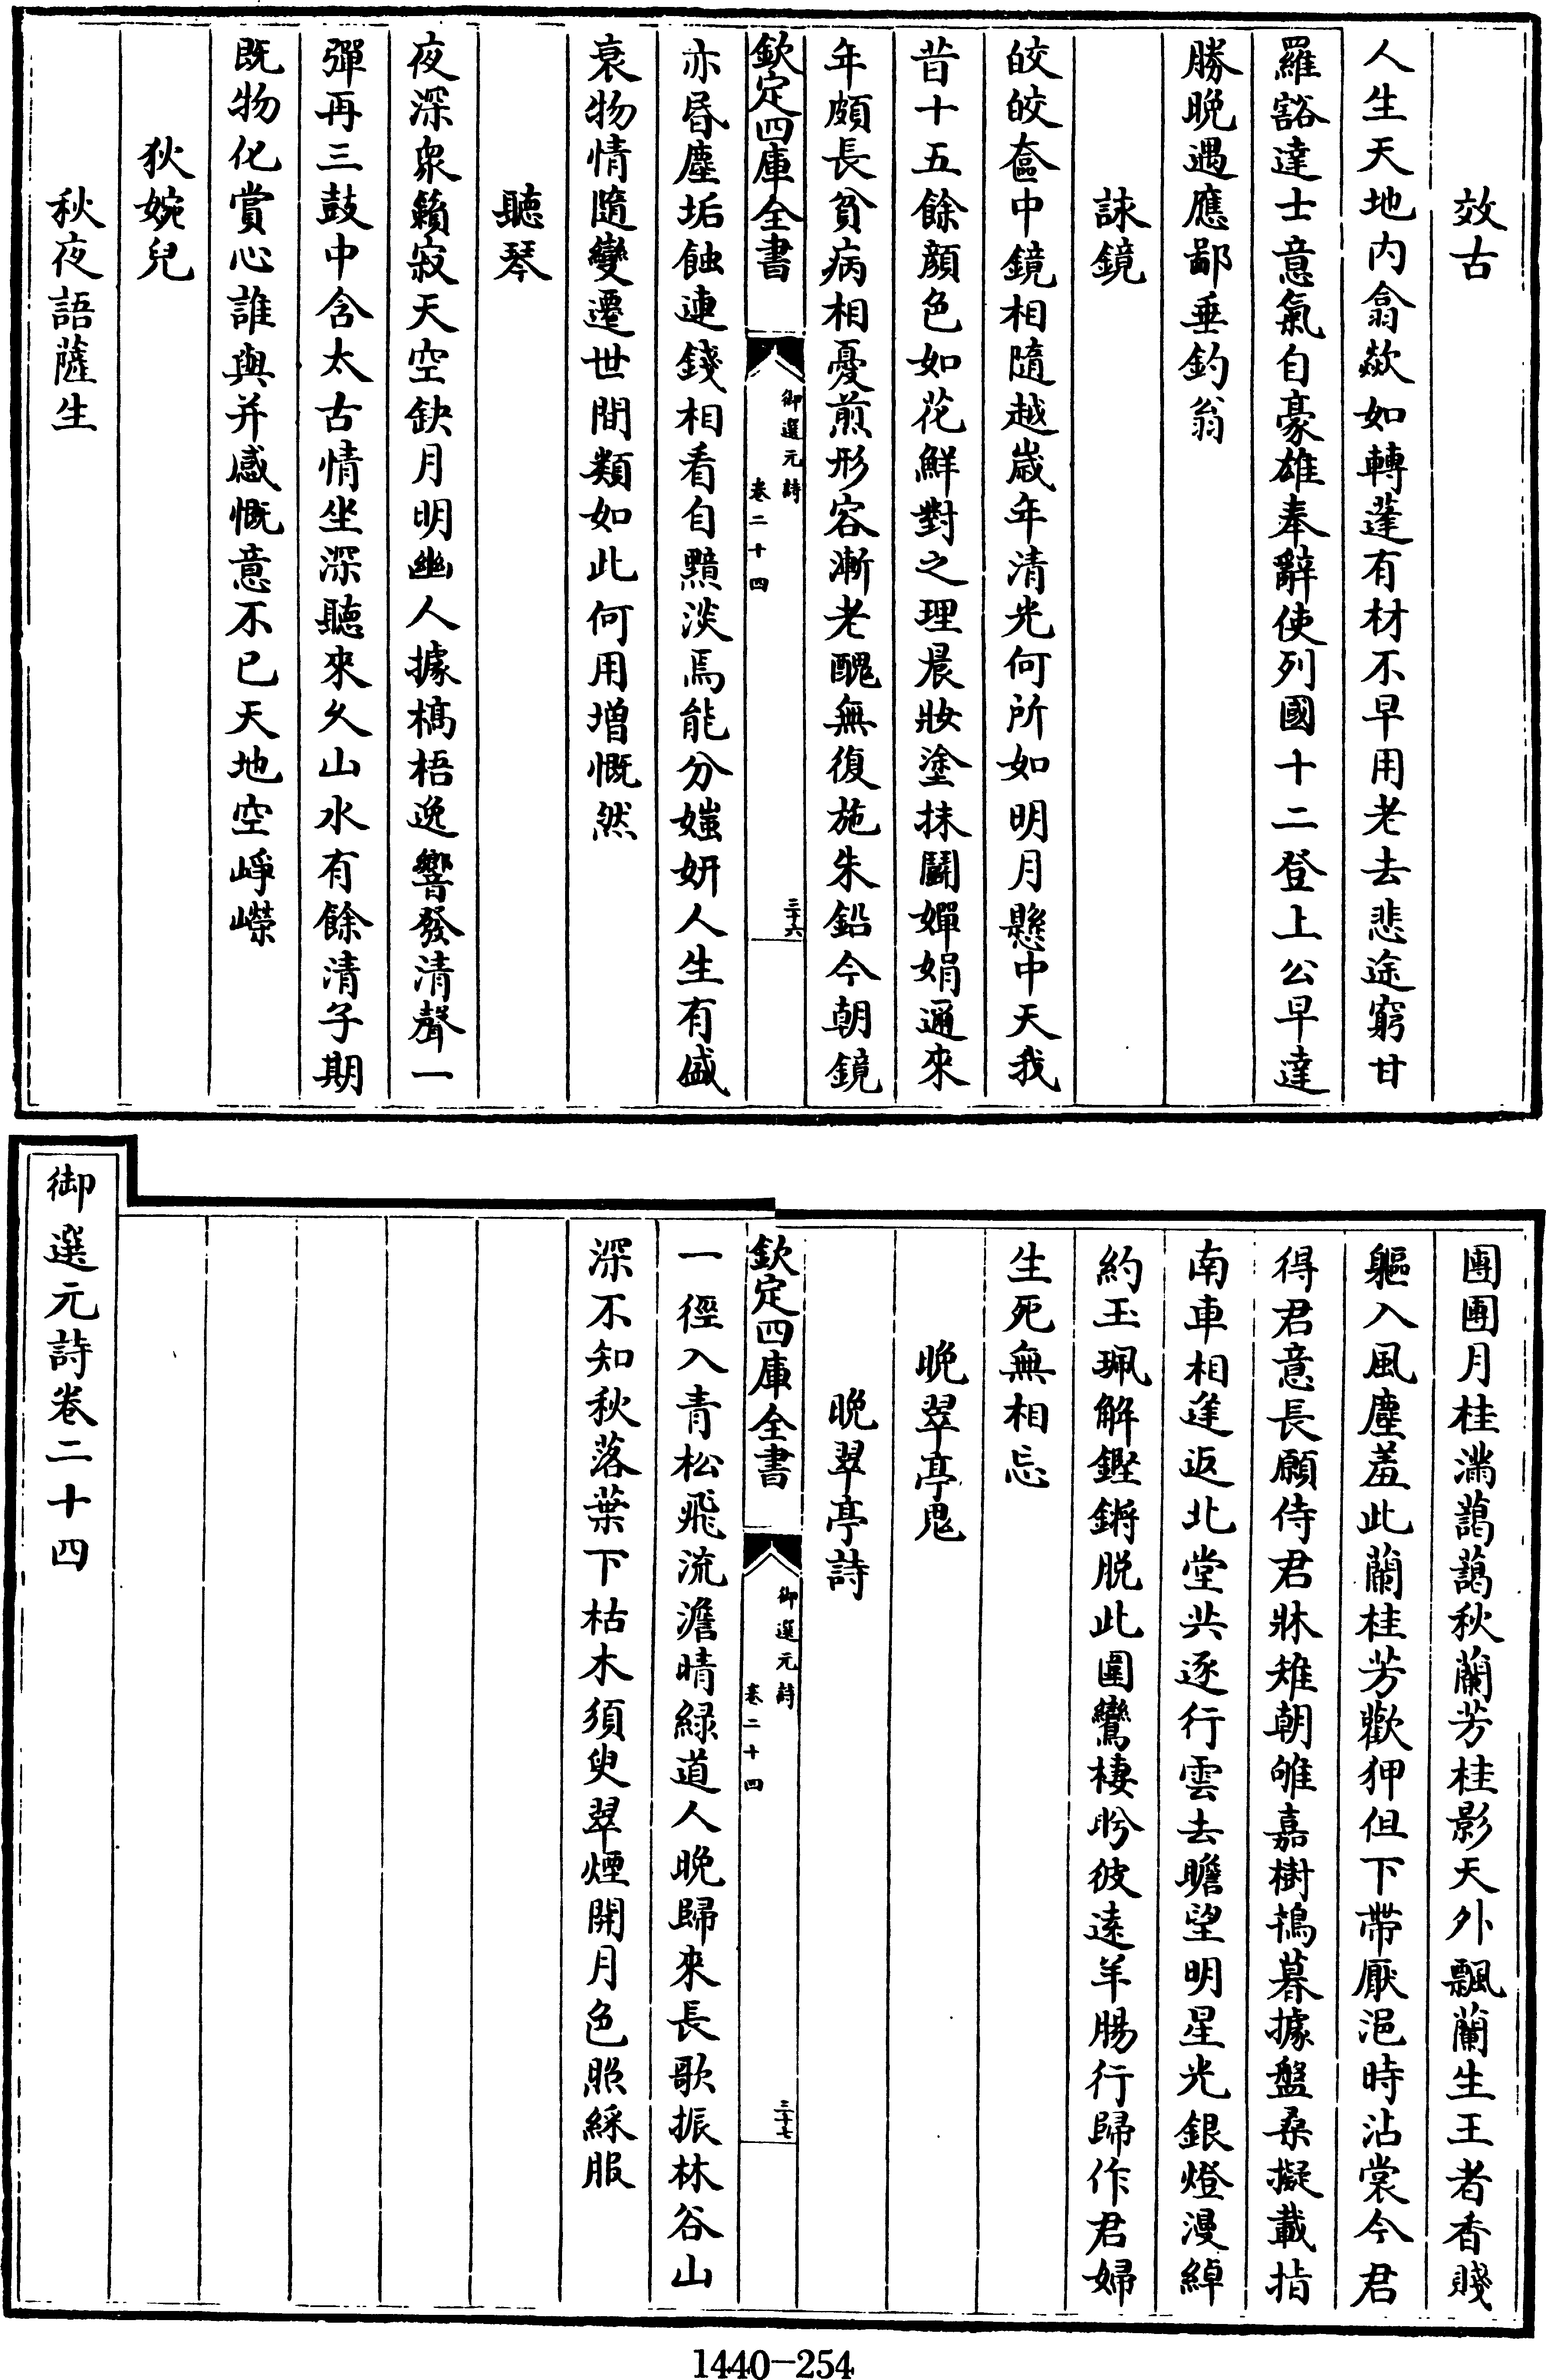 效古
人生天地内翕歘如轉蓬有材不早用老去悲途窮甘
羅豁達士意氣自豪雄奉辭使列國十二登上公早達
勝晚遇應鄙垂釣翁
詠鏡
皎皎奩中鏡相隨越歲年清光何所如明月懸中天我
昔十五餘顔色如花鮮對之理晨妝塗抹鬭嬋娟邇來
年頗長貧病相憂煎形容漸老醜無復施朱鉛今朝鏡
欽定四庫全書
御選元詩
卷二十四
三十六
亦昏塵垢蝕連錢相看自黯淡焉能分媸妍人生有盛
衰物情隨變遷世間類如此何用增慨然
聽琴
夜深衆籟寂天空缺月明幽人據槁梧逸響發清聲一
彈再三鼓中含太古情坐深聽來久山水有餘清子期
既物化賞心誰與并感慨意不已天地空崢嶸
狄婉兒
秋夜語薩生
團團月桂滿藹藹秋蘭芳桂影天外飄蘭生王者香賤
軀入風塵羞此蘭桂芳歡狎但下帶厭浥時沾裳今君
得君意長願侍君牀雉朝雊嘉樹鴇暮據盤桑擬載指
南車相逢返北堂共逐行雲去瞻望明星光銀燈漫綽
約玉珮解鏗鏘脱此圍鸞棲盻彼逺羊腸行歸作君婦
生死無相忘
晚翠亭鬼
晚翠亭詩
欽定四庫全書
御選元詩
卷二十四
三十七
一徑入青松飛流澹晴緑道人晚歸來長歌振林谷山
深不知秋落葉下枯木須臾翠煙開月色照綵服
御選元詩卷二十四
1440-254